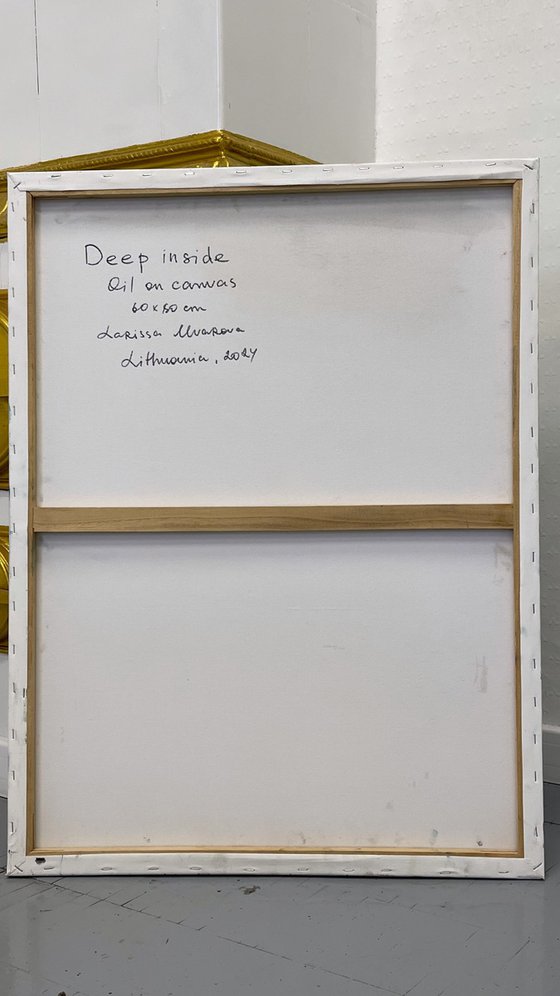 Deep inside
Oil on canvas
60x80 cm
Larissa Uvarova
Lithuania, 2024